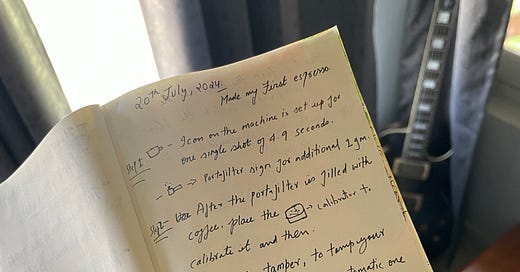 20th July, 2024.
Made my first espresso.
Step 1: - Icon on the machine is set up for
one single shot of 4.9 seconds.
- → Portafilter sign for additional 1gm.
Step 2- After the portafilter is filled with
coffee, place the → calibrator to
calibrate it and then.
tamber, to tamp your
automatic one